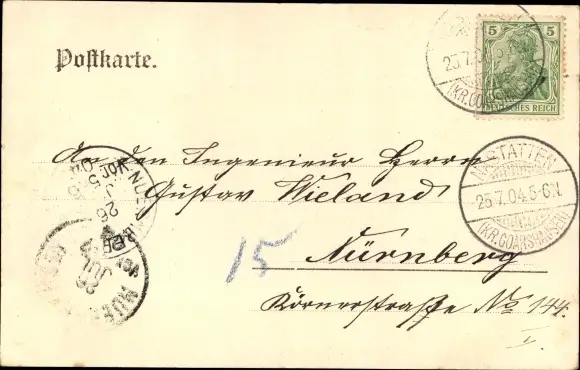 Postkarte.
5 5
DEUTSCHES REICH
25.7.04.
(KR.GOARSHAUSEN)
NASTÄTTEN
25.7.04.5-6.N.
(KR.GOARSHAUSEN)
An den Ingenieur Herrn
Gustav Wieland
Nürnberg
Körnerstraße No 144.
I.
15
26
JUL